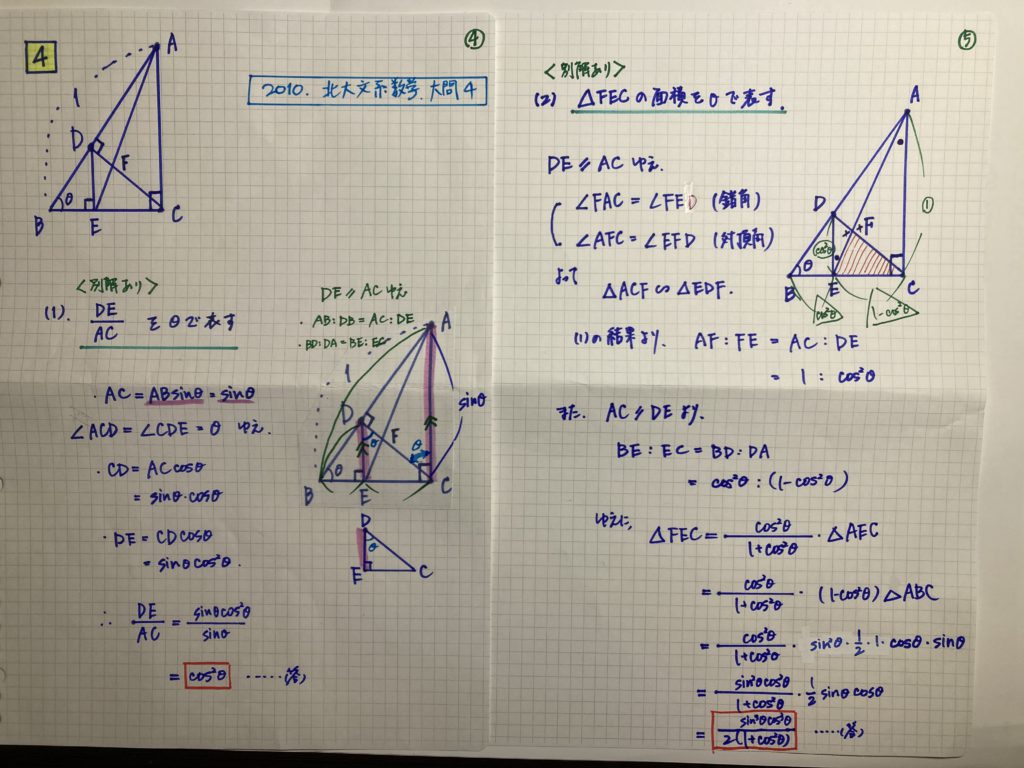 4
④
2010. 北大文系数学. 大問4
A
1
D
F
θ
B
E
C
<別解あり>
(1). DE/AC をθで表す
・AC = ABsinθ = sinθ
∠ACD = ∠CDE = θ ゆえ.
・CD = ACcosθ
= sinθ・cosθ
・DE = CDcosθ
= sinθcos²θ.
∴ DE/AC = sinθcos²θ/sinθ
= cos²θ ……(答)
DE∥AC ゆえ
・AB:DB = AC:DE
・BD:DA = BE:EC
A
1
sinθ
D
θ
F
θ
θ
B
E
C
D
θ
E
C
⑤
<別解あり>
(2) △FECの面積をθで表す.
DE∥AC ゆえ.
∠FAC = ∠FED (錯角)
∠AFC = ∠EFD (対頂角)
よって
△ACF∽△EDF.
(1)の結果より. AF:FE = AC:DE
= 1 : cos²θ
また. AC∥DEより.
BE:EC = BD:DA
= cos²θ:(1-cos²θ)
ゆえに, △FEC = cos²θ/1+cos²θ・△AEC
= cos²θ/1+cos²θ・(1-cos²θ)△ABC
= cos²θ/1+cos²θ・sin²θ・1/2・1・cosθ・sinθ
= sin²θcos²θ/1+cos²θ・1/2 sinθcosθ
= sin³θcos³θ/2(1+cos²θ) ……(答)
A
①
D
F
cos²θ
θ
B
E
C
cos²θ
1-cos²θ